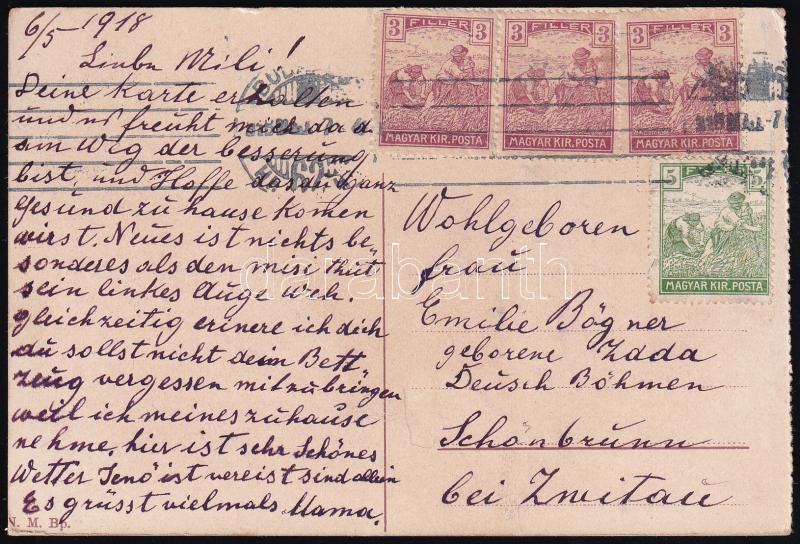 6/5 1918
Liebe Mili!
Deine Karte erhalten
und es freuht mich da d
am Weg der besserung
bist, und Hoffe das du ganz
gesund zu hause komen
wirst. Neues ist nichts be„
sonderes als den misi thut
sein linkes Auge Weh.
gleichzeitig erinere ich dich
du sollst nicht dein Bett
zeug vergessen mitzubringen
weil ich meines zuhause
nehme. hier ist sehr Schönes
Wetter Jenö ist vereist sind allein
Es grüsst vielmals Mama.
N. M. Bp.
3 FILLÉR 3
MAGYAR KIR. POSTA
3 FILLÉR 3
MAGYAR KIR. POSTA
3 FILLÉR 3
MAGYAR KIR. POSTA
5 FILLÉR 5
MAGYAR KIR. POSTA
Wohlgeboren
frau
Emilie Bögner
geborene Zada
Deusch Böhmen
Schönbrunn
bei Zwitau
darabanth